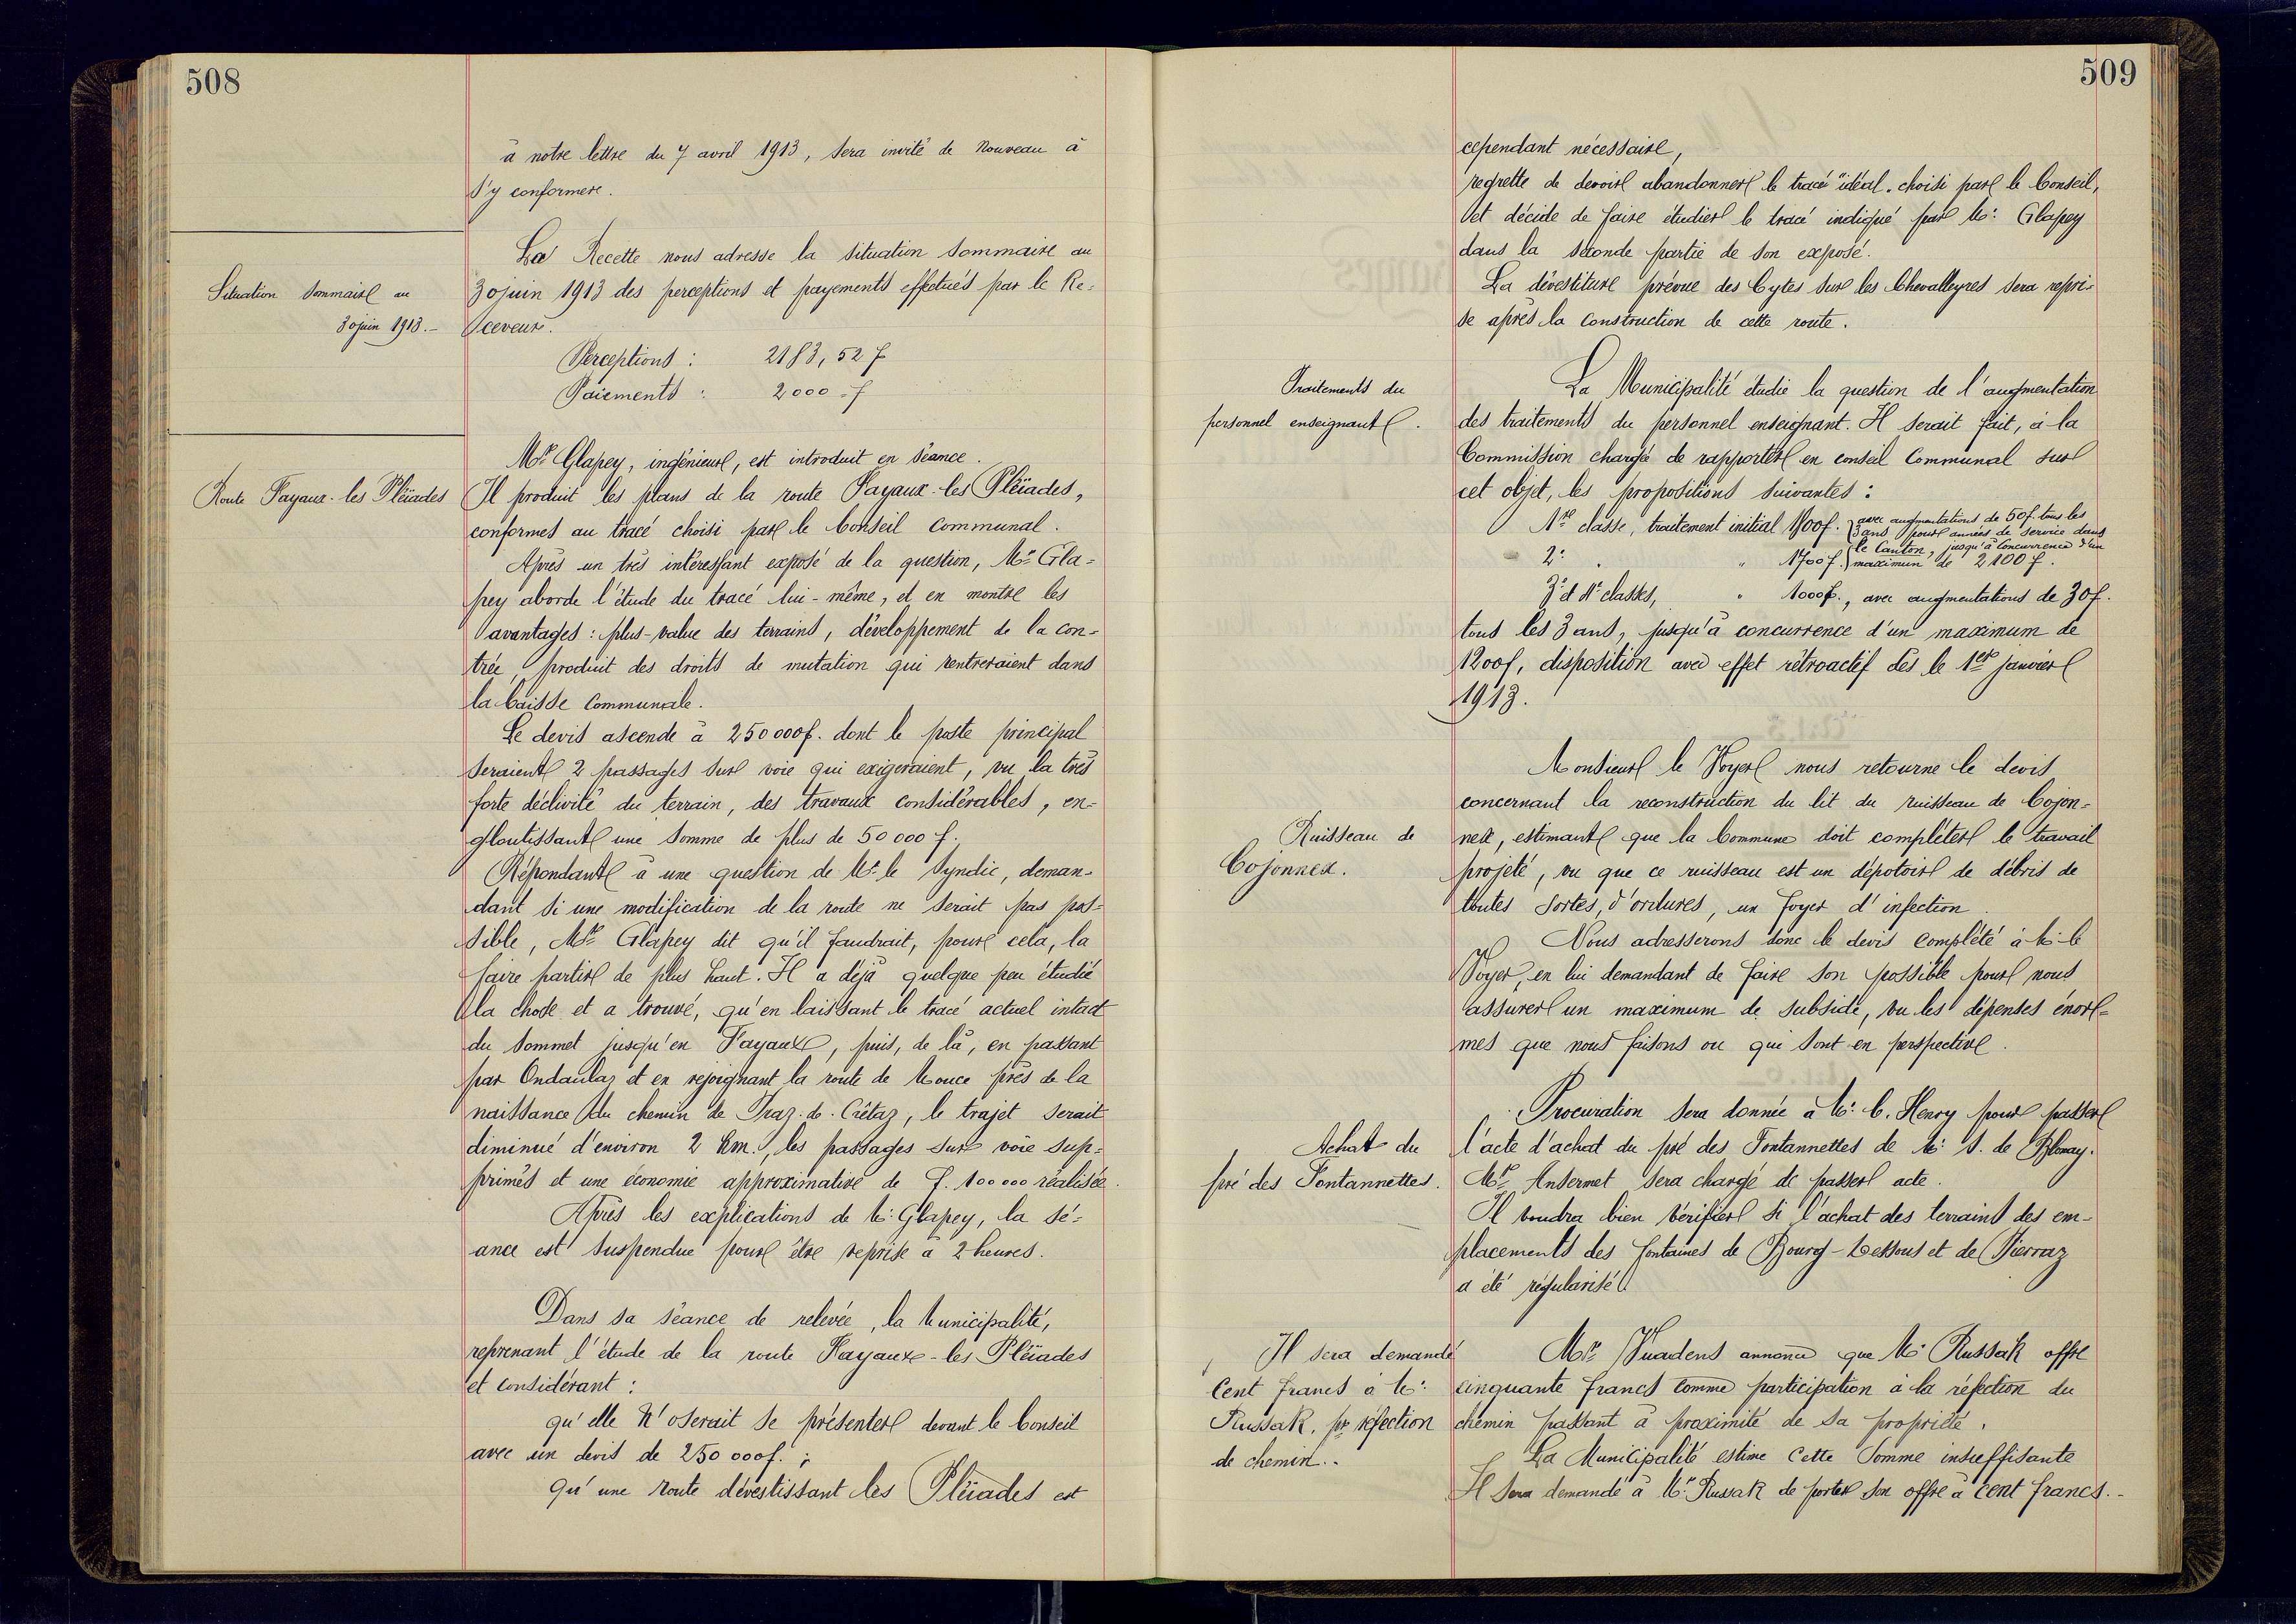 508
à notre lettre du 7 avril 1913, sera invité de nouveau à
s'y conformer.
Situation sommaire au
30 juin 1913.-
La Recette nous adresse la situation sommaire au
30 juin 1913 des perceptions et payements effectués par le Re-
ceveur.
Perceptions : 2183,52 f
Paiements : 2000.- f
Route Fayaux-les Pléiades
Mr. Glapey, ingénieur, est introduit en séance.
Il produit les plans de la route Fayaux-les Pléiades,
conformes au tracé choisi par le Conseil communal.
Après un très intéressant exposé de la question, Mr. Gla-
pey aborde l'étude du tracé lui-même, et en montre les
avantages : plus-value des terrains, développement de la con-
trée, produit des droits de mutation qui rentreraient dans
la Caisse Communale.
Le devis ascende à 250000f. dont le poste principal
seraient 2 passages sur voie qui exigeraient, vu la très
forte déclivité du terrain, des travaux considérables, en-
gloutissant une somme de plus de 50 000 f.
Répondant à une question de Mr. le Syndic, deman-
dant si une modification de la route ne serait pas pos-
sible, Mr. Glapey dit qu'il faudrait, pour cela, la
faire partir de plus haut. Il a déjà quelque peu étudié
la chose et a trouvé, qu'en laissant le tracé actuel intact
du sommet jusqu'en Fayaux, puis, de là, en passant
par Ondaulaz et en rejoignant la route de Mouce près de la
naissance du chemin de Praz-d.-Crêtaz, le trajet serait
diminué d'environ 2 km., les passages sur voie sup-
primés et une économie approximative de F. 100000 réalisée.
Après les explications de Mr. Glapey, la sé-
ance est suspendue pour être reprise à 2 heures.
Dans sa séance de relevée, la Municipalité,
reprenant l'étude de la route Fayaux-les Pléiades
et considérant :
qu'elle n'oserait se présenter devant le Conseil
avec un devis de 250 000f. ;
qu'une route dévestissant les Pléiades est
509
cependant nécessaire,
regrette de devoir abandonner le tracé "idéal" choisi par le Conseil,
et décide de faire étudier le tracé indiqué par Mr. Glapey
dans la seconde partie de son exposé.
La dévestiture prévue des Cytes sur les Chevalleyres sera repri-
se après la construction de cette route.
Traitements du
personnel enseignant.
La Municipalité étudie la question de l'augmentation
des traitements du personnel enseignant. Il serait fait, à la
Commission chargée de rapporter en conseil Communal sur
cet objet, les propositions suivantes :
1re classe, traitement initial 1800f. avec augmentations de 50f. tous les
3 ans pour années de service dans
2e " " 1700 f. le Canton, jusqu'à concurrence d'un
maximum de 2100 f.
3e et 4e classes, " 1000f., avec augmentations de 30f.
tous les 3 ans, jusqu'à concurrence d'un maximum de
1200f, disposition avec effet rétroactif dès le 1er janvier
1913.
Ruisseau de
Cojonnex.
Monsieur le Voyer nous retourne le devis
concernant la reconstruction du lit du ruisseau de Cojon-
nex, estimant que la Commune doit compléter le travail
projeté, vu que ce ruisseau est un dépotoir de débris de
toutes sortes, d'ordures, un foyer d'infection.
Nous adresserons donc le devis complété à Mr. le
Voyer, en lui demandant de faire son possible pour nous
assurer un maximum de subside, vu les dépenses énor-
mes que nous faisons ou qui sont en perspective.
Achat du
pré des Fontannettes.
Procuration sera donnée à Mr. C. Henry pour passer
l'acte d'achat du pré des Fontannettes de Mr. S. de Blonay.
Mr. Ansermet sera chargé de passer acte.
Il voudra bien vérifier si l'achat des terrains des em-
placements des fontaines de Bourg-Dessous et de Pierraz
a été régularisé.
Il sera demandé
Cent francs à Mr.
Russak, pr réfection
de chemin..
Mr. Vuadens annonce que Mr. Russak offre
cinquante francs comme participation à la réfection du
chemin passant à proximité de sa propriété.
La Municipalité estime cette somme insuffisante
Il sera demandé à Mr. Russak de porter son offre à cent francs.-